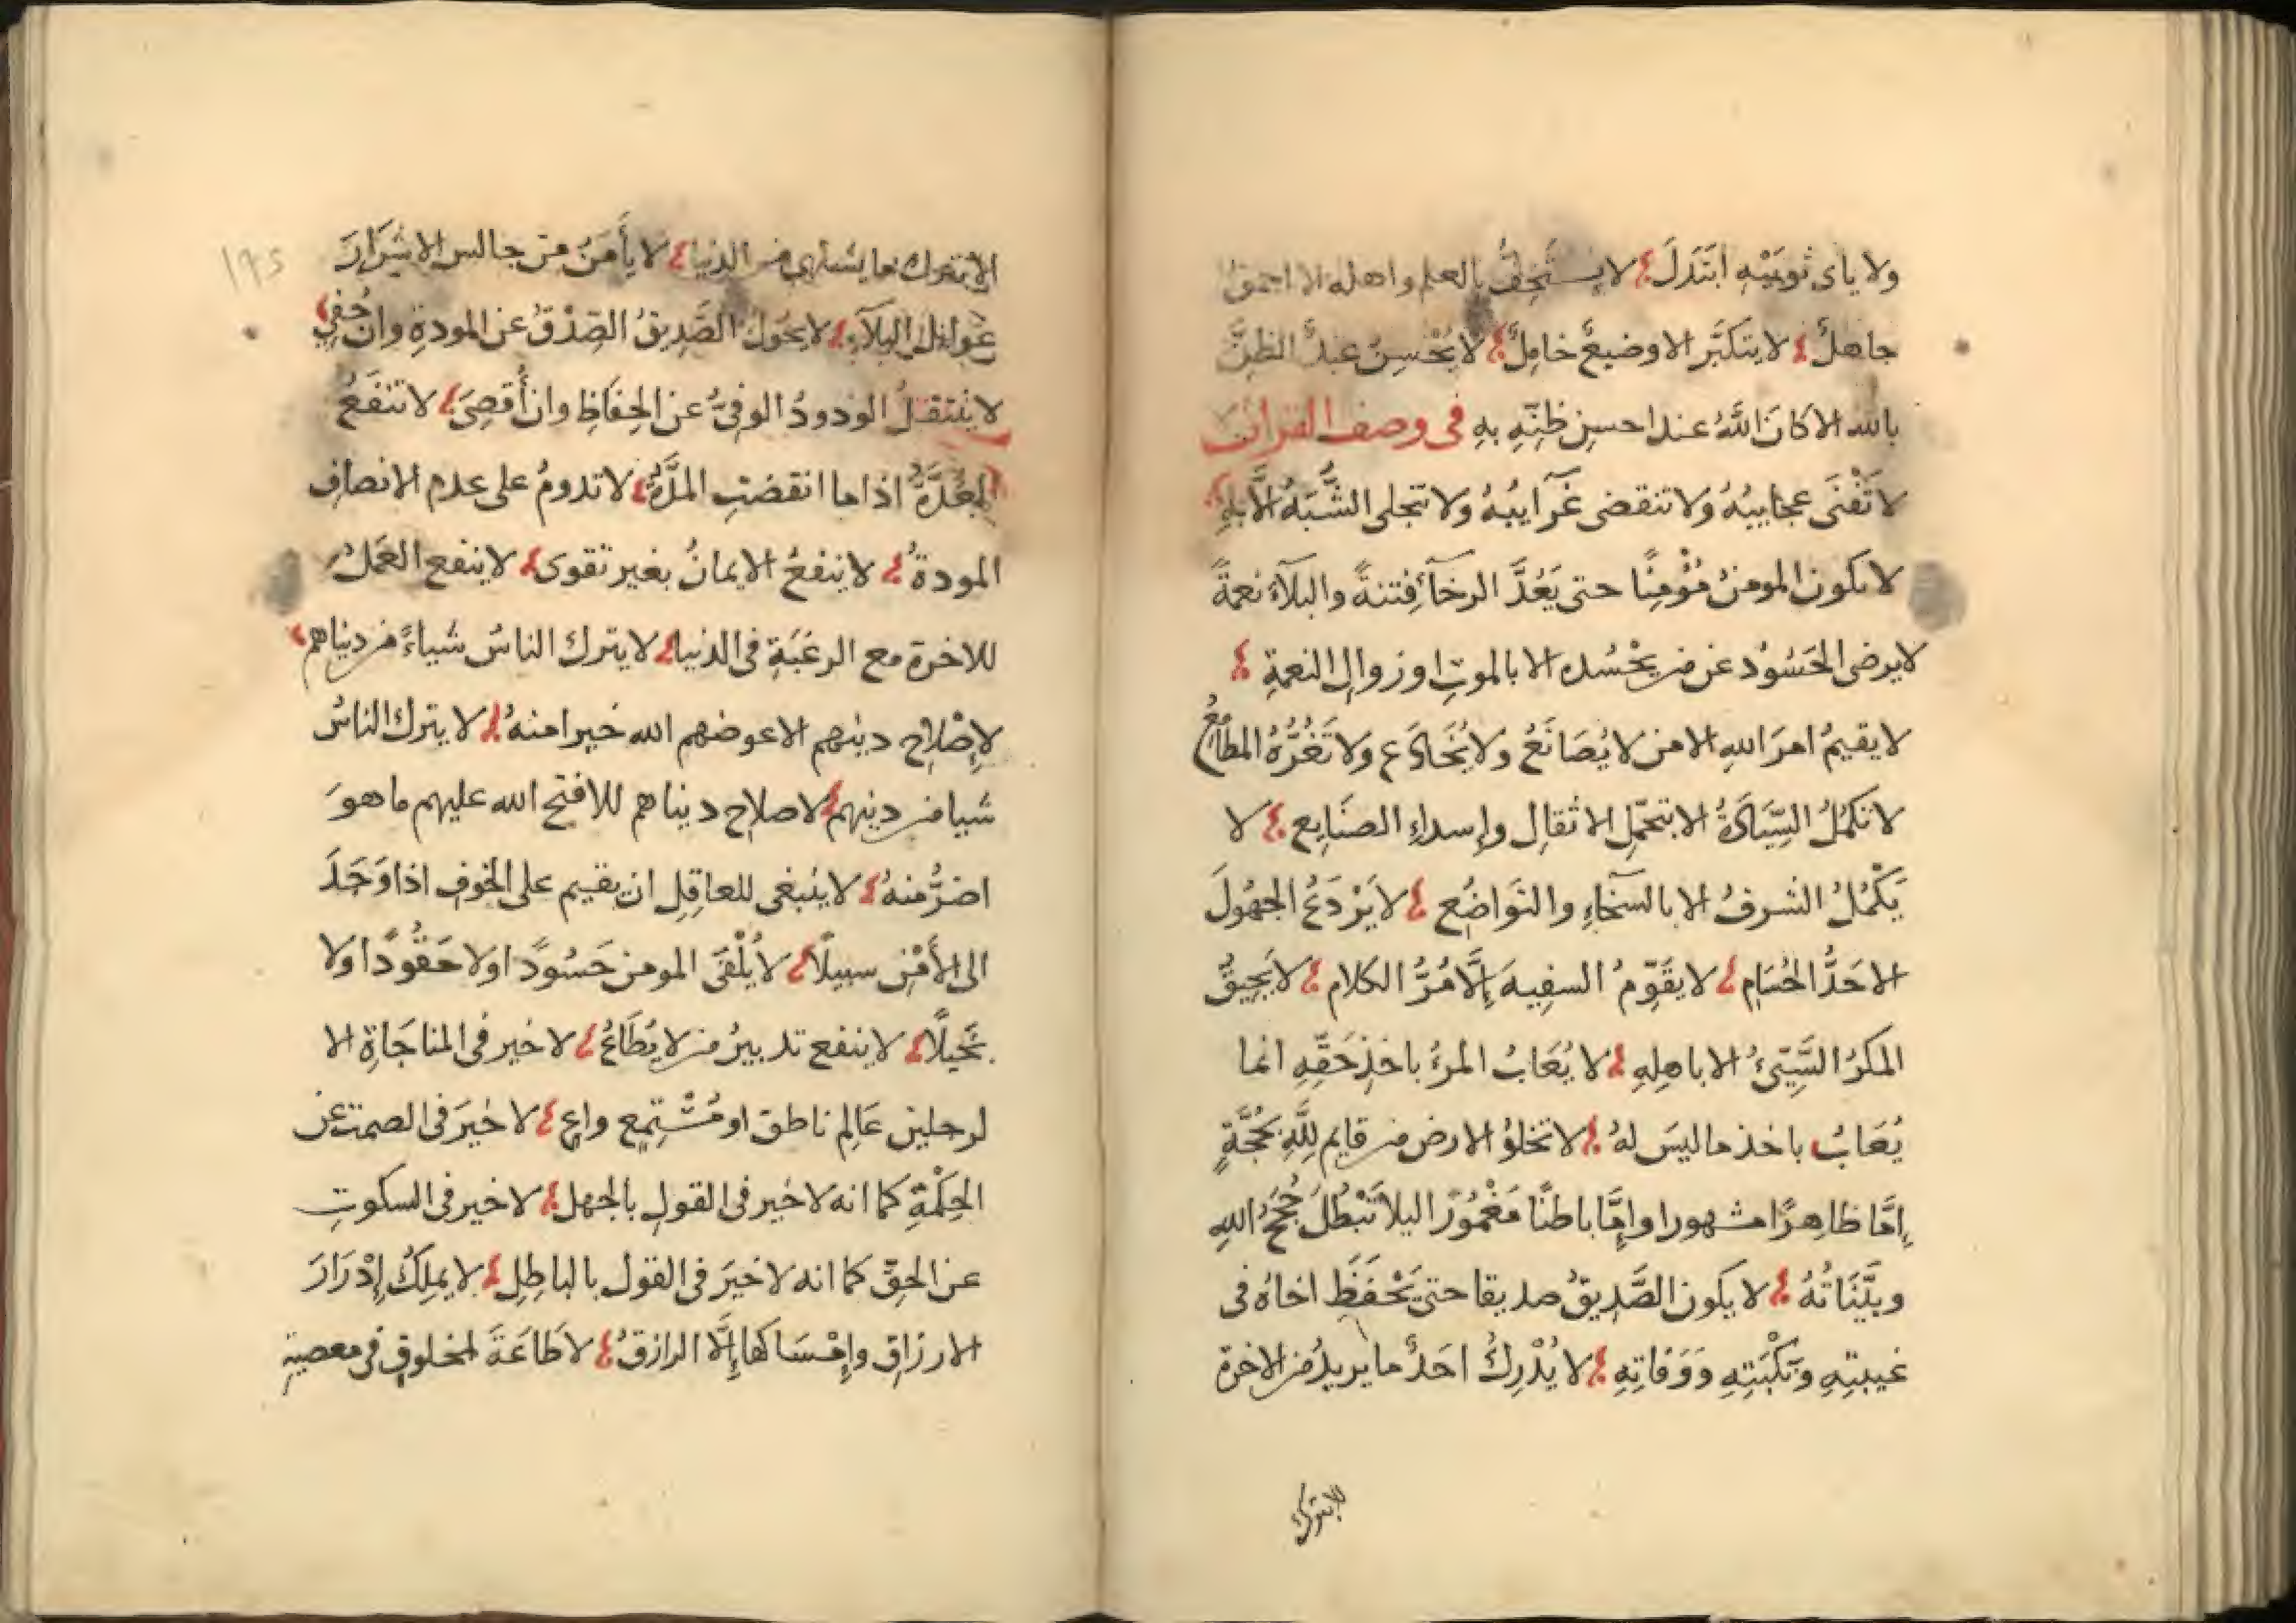 ولا باى ثوبيه ابتذل لا يستخف بالعلم واهله الا احمق
جاهلٌ لا يتكبَّر الا وضيعٌ خاملٌ لا يُحْسِنُ عبدٌ الظنَّ
بالله الا كانَ اللهُ عند احسن ظنِّهِ بهِ فى وصف القران
لا تَفْنَى عجايبُهُ ولا تنقضى غَرآيبُهُ ولا تنجلى الشُّبَهُ الَّا بهِ
لا يكون المومنُ مُؤْمِنًا حتى يَعُدَّ الرخآءَ فِتنةً والبلآءَ نعمةً
لا يرضى الحَسُوُد عن من يَحْسُده الا بالموتِ او زوالِ النعمةِ
لا يقيمُ امرَ اللهِ الا من لا يُصَانَعُ ولا يُخَادَع ولا تَغُرُّهُ المطامعُ
لا تكمُلُ السِّيَادَةُ الا بتحمّلِ الاثقالِ وإسداءِ الصنَايِع لا
يَكْمُلُ الشرفُ الا بالسَّخآءِ والتوَاضُع لا يَرْدَعُ الجهُولَ
الا حَدُّ الحُسَامِ لا يقَوِّمُ السفِيهَ إِلَّا مُرُّ الكلام لا يَحِيقُ
المكرُ السَّيِّئُ الا باهلِهِ لا يُعَابُ المرءُ باخذِ حَقِّهِ انما
يُعَابُ باخذ ما ليسَ لهُ لا تخلوُ الارض من قايم لِلَّهِ بحُجَّةٍ
إِمَّا ظاهِرًا مشهورا وإِمَّا باطنًا مَغْمُورًا ليلا تَبْطُلَ حُجَجُ اللهِ
وبَيِّنَاتُهُ لا يكون الصَّدِيقُ صديقا حتى يَحْفَظَ اخاهُ فى
غيبتِهِ ونَكْبَتِهِ وَوَفاتِهِ لا يُدْرِكُ احَدٌ ما يريدُ من الاخرة
الا بترك
الا بترك ما يشتهى من الدنيا لا يأمَنُ من جالس الاشرَارَ
غوائل البلآءِ لا يحُولُ الصَّدِيقُ الصِّدْقُ عن المودةِ وان جُفِيَ
لا ينتقلُ الودودُ الوفىُّ عن الحِفَاظِ وان أُقصِىَ لا تنفَعُ
العُدَّةُ اذا ما انقضتِ المدَّةُ لا تدومُ على عدم الانصافِ
المودةُ لا ينفعُ الايمانُ بغير تقوى لا ينفع العَمَلُ
للاخرة مع الرغبَةِ فى الدنيا لا يترك الناسُ شياءً من دنياهم
لإِصْلاحِ دينهم الا عوضهم الله خيرا منهُ لا يترك الناسُ
شيا من دينهم لاصلاح ديناهم للا فتح الله عليهم ما هوَ
اضرُّ منهُ لا ينبغى للعاقِلِ ان يقيم على الخوفِ اذا وَجَدَ
الى الأَمْنِ سبيلًا لا يُلْفَى المومن حَسُودًا ولا حَقُودًا ولا
بَخيلًا لا ينفع تدبيرُ من لا يُطَاعُ لا خير فى المناجَاةِ الا
لرجلين عَالِم ناطق او مُسْتمِع واعٍ لا خيَرَ فى الصمت عن
الحِكْمَةِ كما انه لا خير فى القول بالجهل لا خير فى السكوتِ
عن الحقّ كما انه لا خيرَ فى القول بالباطِلِ لا يملِكُ إِدْرَارَ
الارزاقِ وإِمْسَاكَها إِلَّا الرازقُ لا طَاعَةَ لمخلوقٍ فى معصيةِ